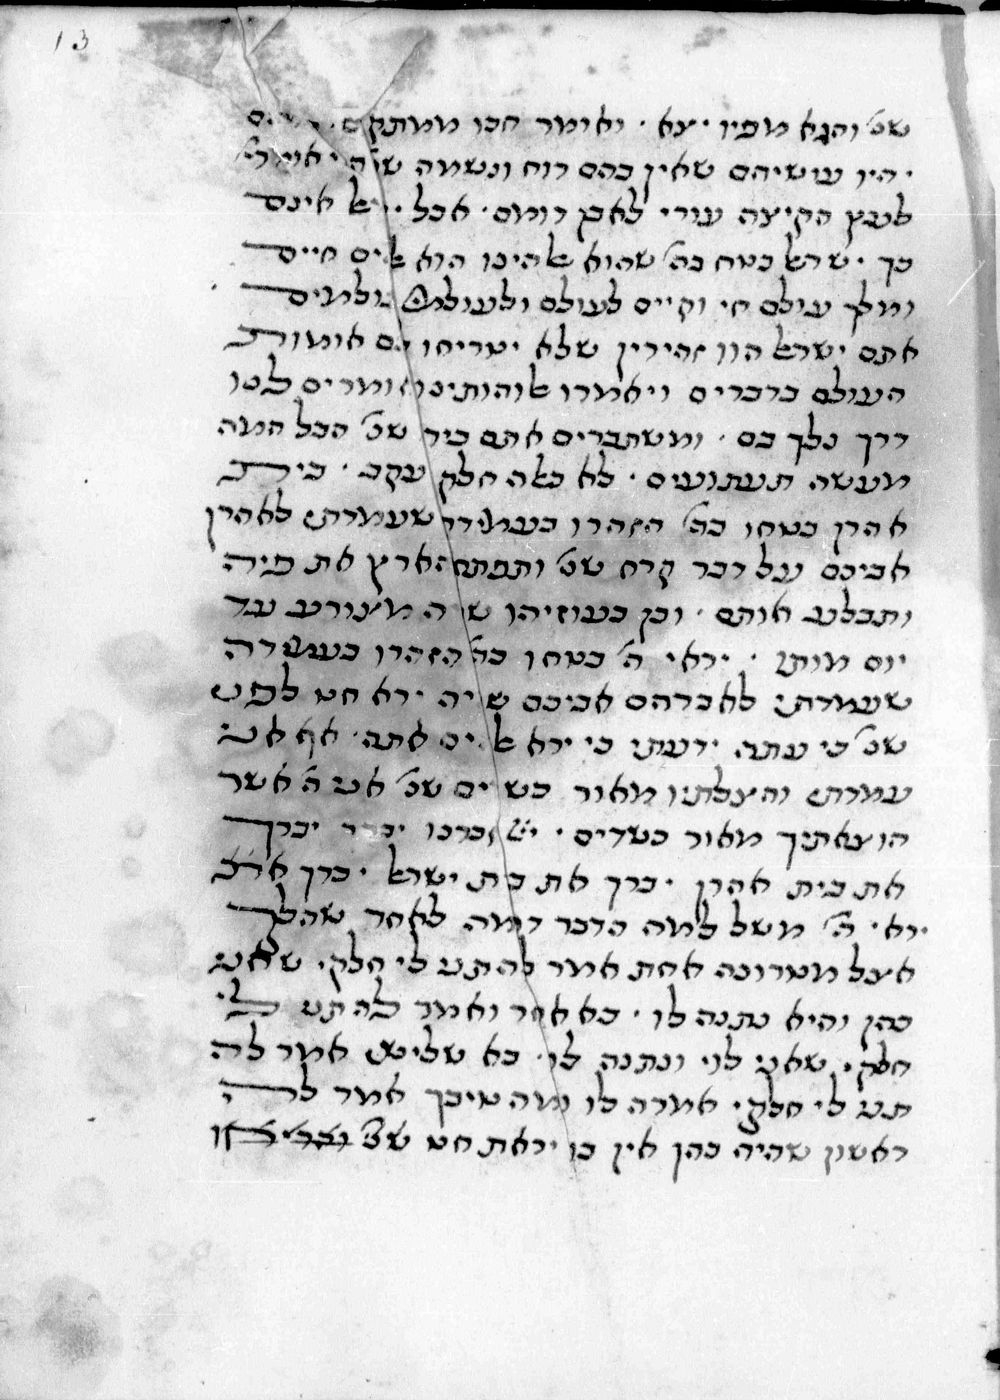 13
שנ' והגא מפיו יצא · ואומר חכו ממתקים
· היו עושיהם שאין בהם רוח ונשמה
לעץ הקיצה עורי לאבן דומם · אבל אינם
כך · ישראל בטח בה' שהוא אלהינו הוא אלים חיים
ומלך עולם חי וקיים לעולם ולעולמי עולמים
אתם ישראל הוו זהירין שלא יטריחו בם אומות
העולם בדברים ויאמרו אומרים לנו
דרך נלך בם · ומשתברים אתם ביד שנ' הבל המה
מעשה תעתועים · לא כאלה חלק יעקב · בית
אהרן בטחו בה' הזהרו בעמידה שעמדתי לאהרן
אביכם על דבר קרח שנ' ותפתח הארץ את פיה
ותבלע אותם · וכן בעוזיהו מצורע עד
יום מותו · יראי ה' בטחו בה' הזהרו בעמידה
שעמדתי לאברהם אביכם שהיה ירא חט לפני
שנ' כי עתה ידעתי כי ירא אלים אתה · אף אני
עמדתי והצלתיו מאור כשדים שנ' אני ה' אשר
הוצאתיך מאור כשדים · זכרנו יברך יברך
את בית אהרן · יברך את בית ישראל · יברך את
יראי ה' משל למה הדבר דומה לאחד שהלך
אצל מטרונה אחת אמר לה תני לי חלקי שאני
כהן והיא נתנה לו · בא אחר ואמר לה תני לי
חלקי שאני לוי ונתנה לו · בא שלישי אמר לה
תני לי חלקי אמרה לו מה טיבך אמר לה
ראשון שהיה כהן אין בו יראת חט